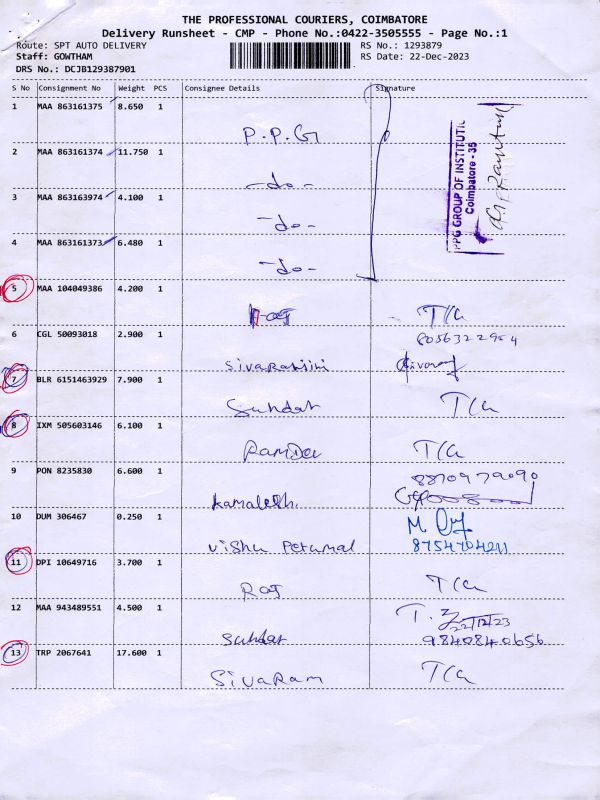 THE PROFESSIONAL COURIERS, COIMBATORE
Delivery Runsheet - CMP - Phone No.:0422-3505555 - Page No.:1
Route: SPT AUTO DELIVERY
RS No.: 1293879
Staff: GOWTHAM
RS Date: 22-Dec-2023
DRS No.: DCJB129387901
S No Consignment No Weight PCS Consignee Details Signature
1 MAA 863161375 8.650 1
P.P.G
PPG GROUP OF INSTITUTI
Coimbatore - 35
2 MAA 863161374 11.750 1
-do-
3 MAA 863163974 4.100 1
-do-
4 MAA 863161373 6.480 1
-do-
5 MAA 104049386 4.200 1
T/G
6 CGL 50093018 2.900 1
8056322954
Sivaranjini
7 BLR 6151463929 7.900 1
Sundar T/G
8 IXM 505603146 6.100 1
RamDev T/G
9 PON 8235830 6.600 1
8870979090
Kamalesh.
10 DUM 306467 0.250 1
Vishu Perumal 8754704211
11 DPI 10649716 3.700 1
Raj T/G
12 MAA 943489551 4.500 1
22/12/23
Sundar 9840840656
13 TRP 2067641 17.600 1
Sivaram T/G